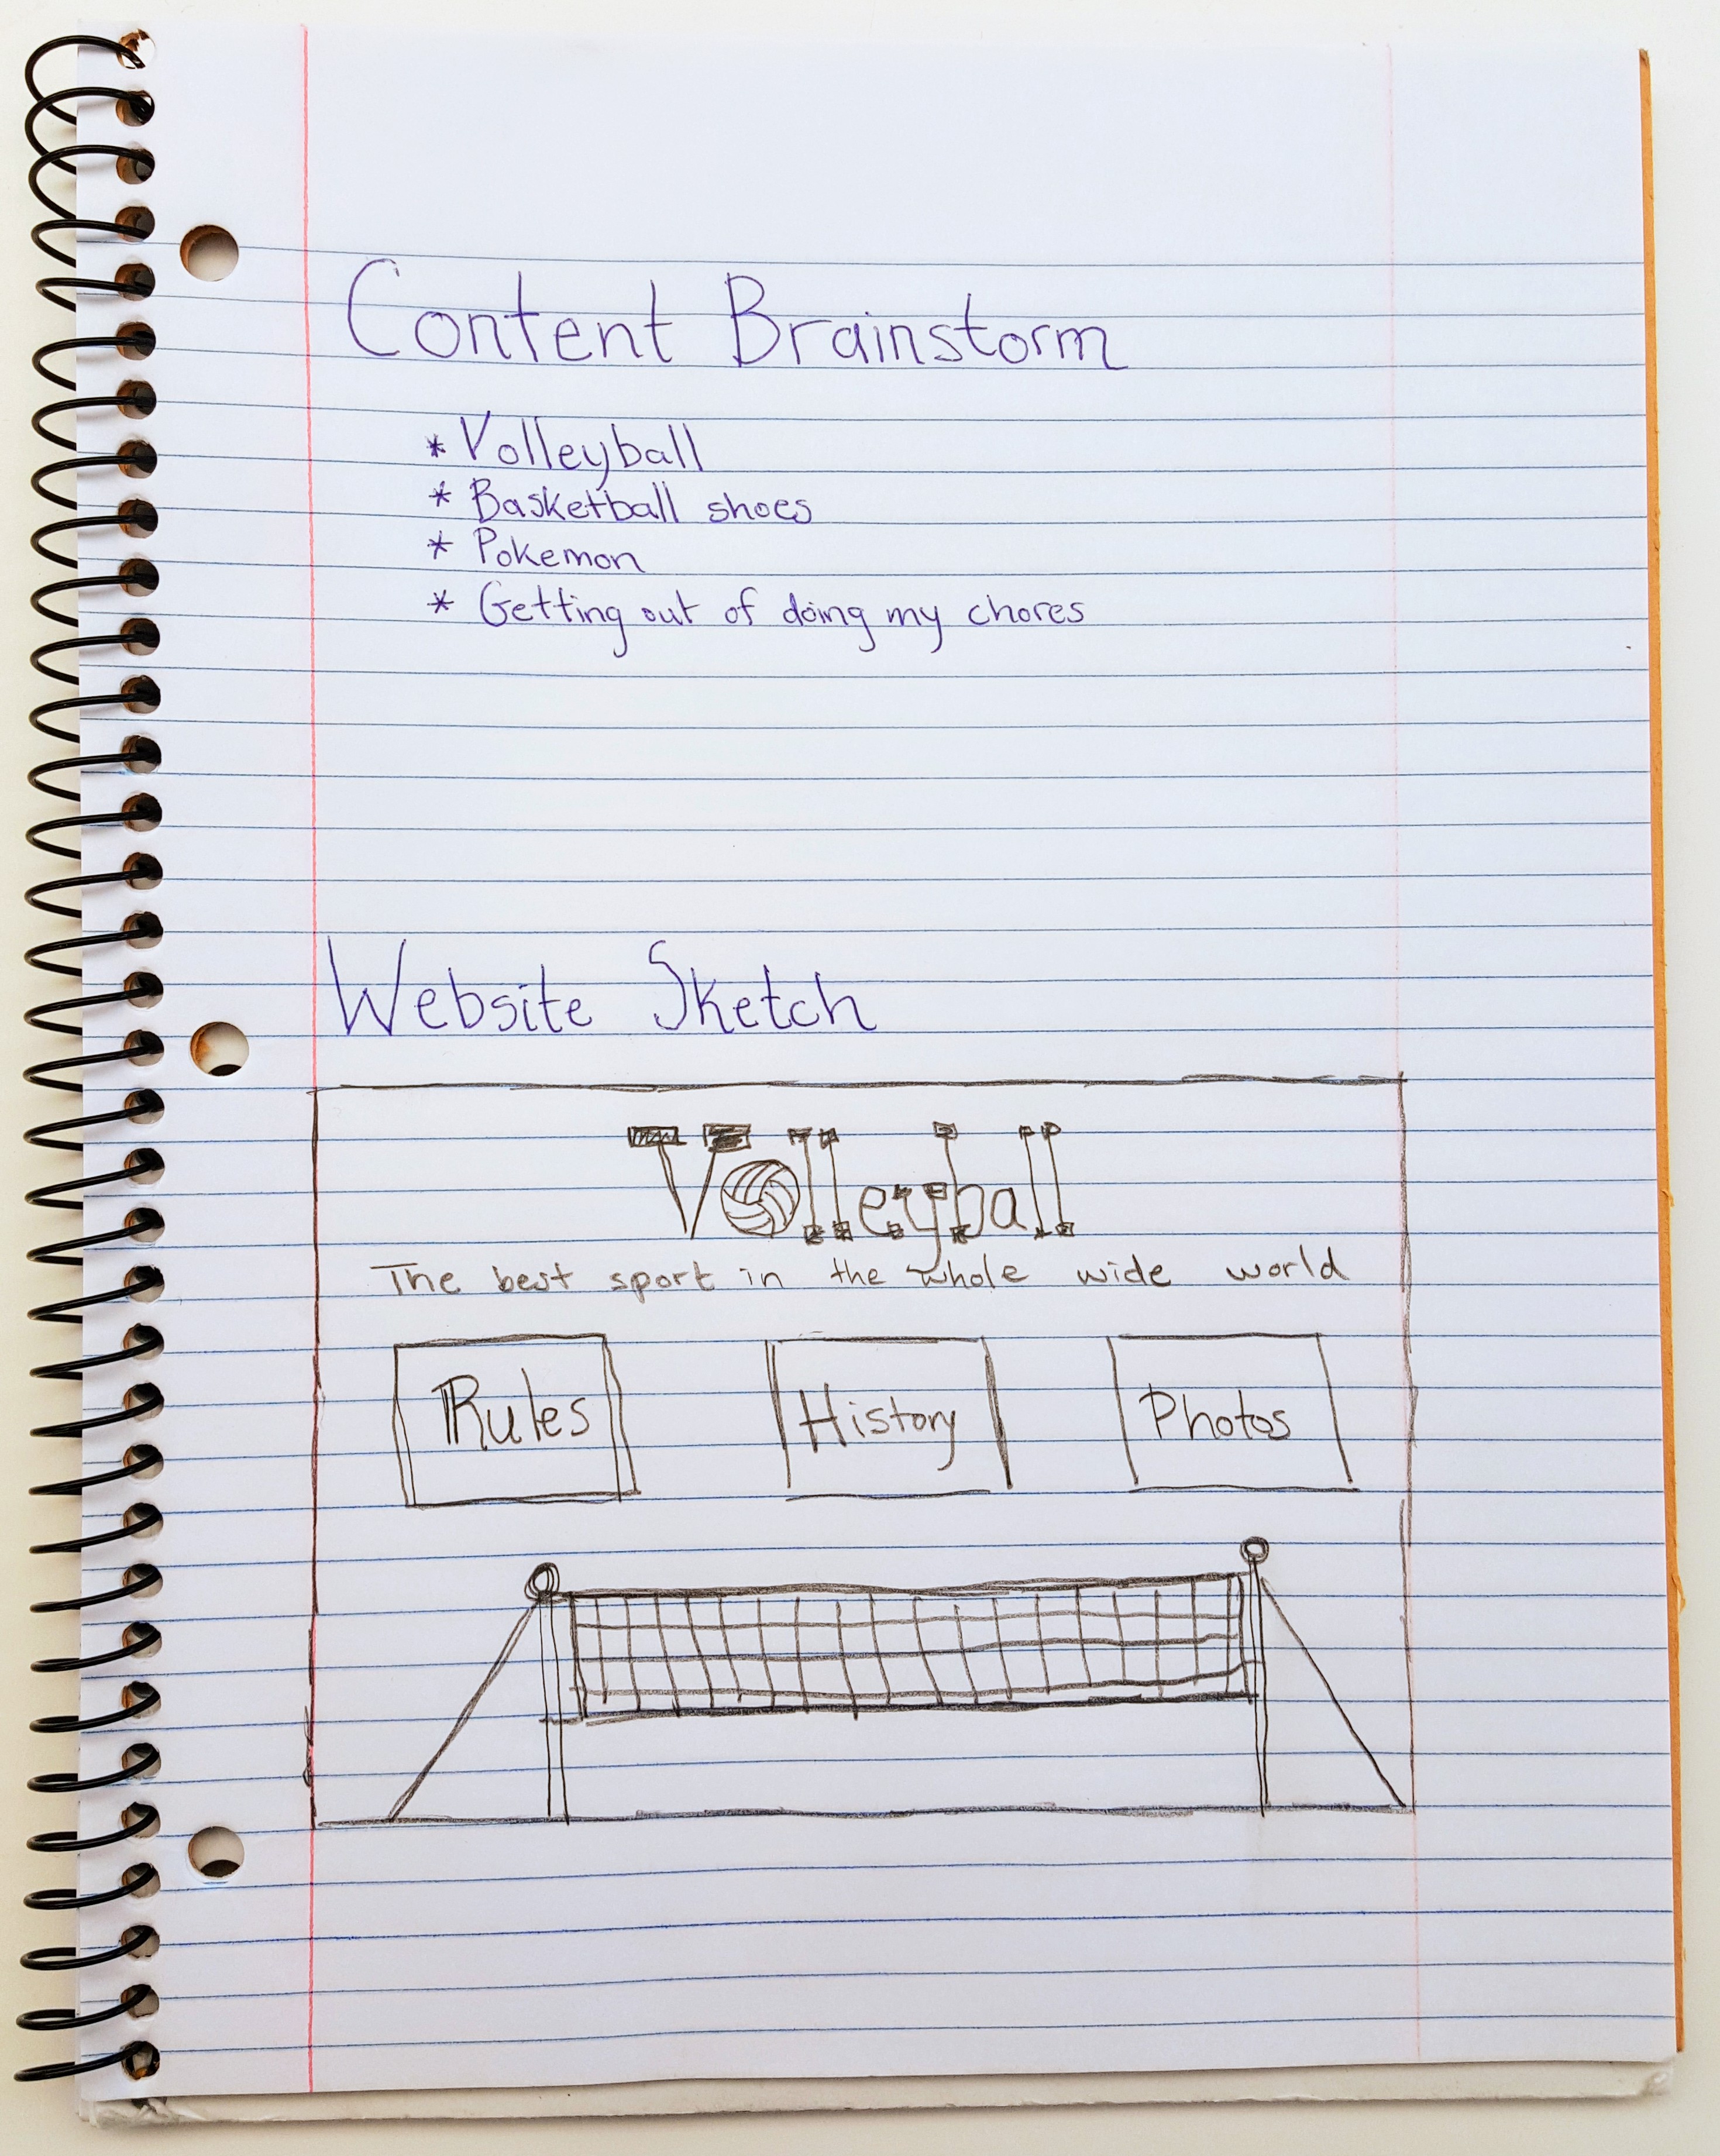 Content Brainstorm
* Volleyball
* Basketball shoes
* Pokemon
* Getting out of doing my chores
Website Sketch
Volleyball
The best sport in the whole wide world
Rules
History
Photos